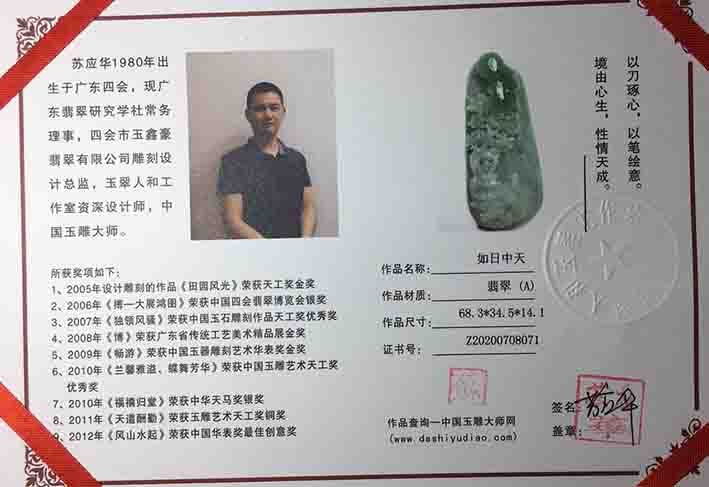 苏应华1980年出
生于广东四会，现广
东翡翠研究学社常务
理事，四会市玉鑫豪
翡翠有限公司雕刻设
计总监，玉翠人和工
作室资深设计师，中
国玉雕大师。
以刀琢心，以笔绘意。
境由心生，性情天成。
所获奖项如下：
1、2005年设计雕刻的作品《田园风光》荣获天工奖金奖
2、2006年《搏一大展鸿图》荣获中国四会翡翠博览会银奖
3、2007年《独领风骚》荣获中国玉石雕刻作品天工奖优秀奖
4、2008年《博》荣获广东省传统工艺美术精品展金奖
5、2009年《畅游》荣获中国玉器雕刻艺术华表奖金奖
6、2010年《兰馨雅溢、蝶舞芳华》荣获中国玉雕艺术天工奖
优秀奖
7、2010年《福禧归堂》荣获中华天马奖银奖
8、2011年《天道酬勤》荣获玉雕艺术天工奖铜奖
9、2012年《风山水起》荣获中国华表奖最佳创意奖
作品名称： 如日中天
作品材质： 翡翠 (A)
作品尺寸： 68.3*34.5*14.1
证书号： Z20200708071
签名：
盖章：
作品查询—中国玉雕大师网
(www.dashiyudiao.com)